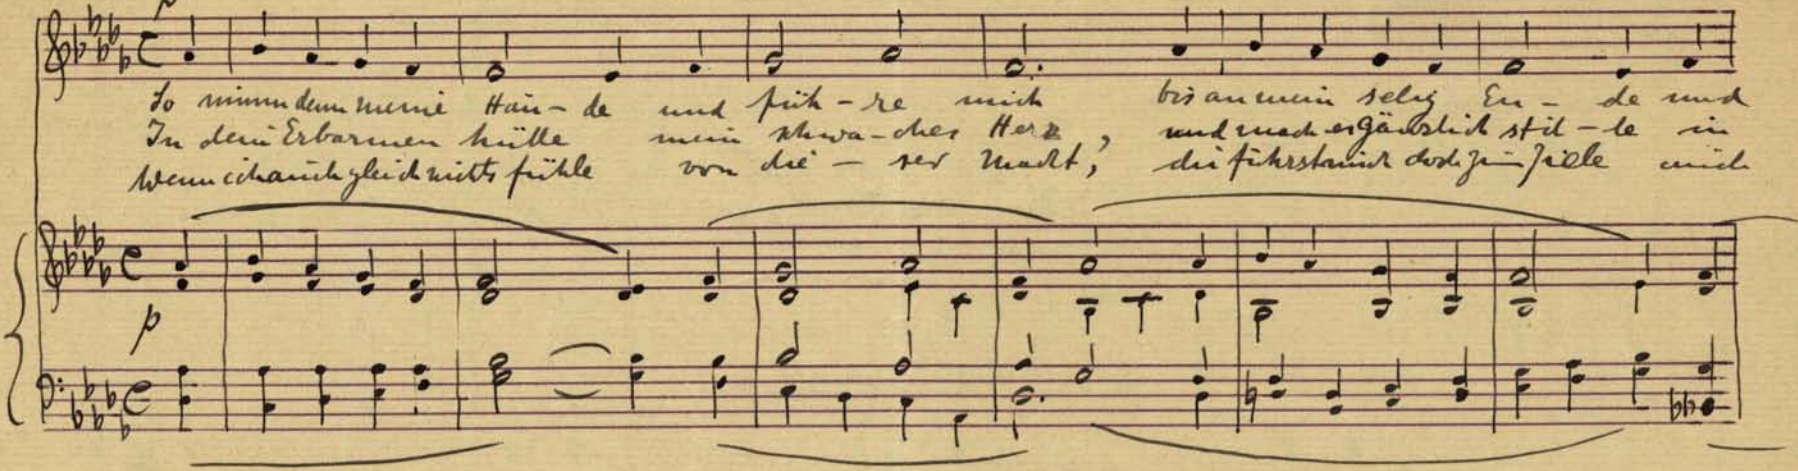 p
So nimm denn meine Hän - de und füh - re mich bis an mein selig En - de und
In dein Erbarmen hülle mein schwa - ches Herz, und mach es gänzlich stil - le in
Wenn ich auch gleich nichts fühle von die - ser Macht, du führst mich doch zum Ziele auch
p